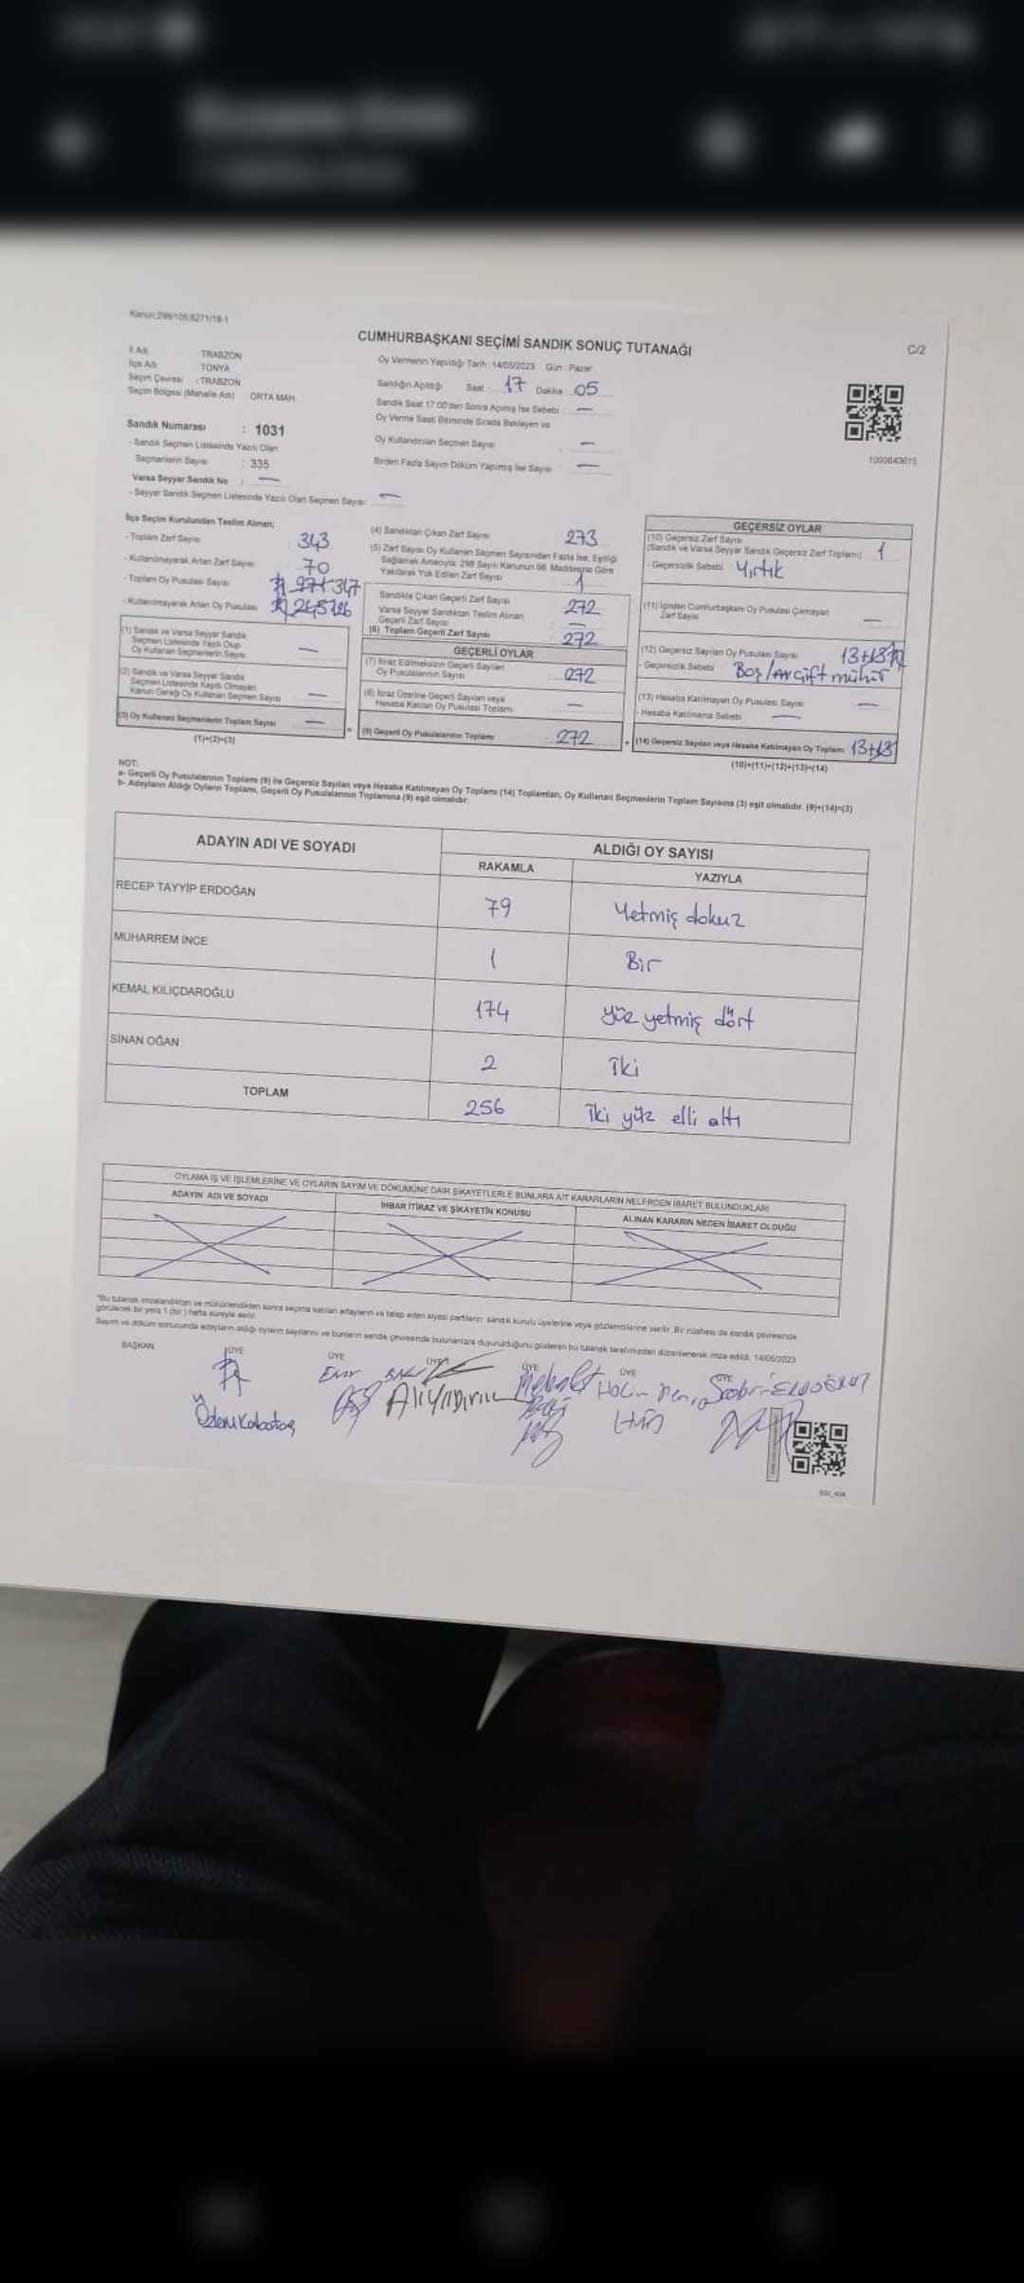 Kanun:298/105,6271/18-1
CUMHURBAŞKANI SEÇİMİ SANDIK SONUÇ TUTANAĞI
C/2
İl Adı TRABZON
İlçe Adı TONYA
Seçim Çevresi : TRABZON
Seçim Bölgesi (Mahalle Adı) ORTA MAH.
Oy Vermenin Yapıldığı Tarih :14/05/2023 Gün : Pazar
Sandığın Açıldığı Saat : 17 Dakika : 05
Sandık Saat 17:00'den Sonra Açılmış İse Sebebi : —
Oy Verme Saati Bitiminde Sırada Bekleyen ve
Oy Kullandırılan Seçmen Sayısı : —
Birden Fazla Sayım Döküm Yapılmış İse Sayısı : —
1093643615
Sandık Numarası : 1031
- Sandık Seçmen Listesinde Yazılı Olan
Seçmenlerin Sayısı : 335
Varsa Seyyar Sandık No : —
- Seyyar Sandık Seçmen Listesinde Yazılı Olan Seçmen Sayısı : —
İlçe Seçim Kurulundan Teslim Alınan;
- Toplam Zarf Sayısı 343
- Kullanılmayarak Artan Zarf Sayısı 70
- Toplam Oy Pusulası Sayısı 347
- Kullanılmayarak Artan Oy Pusulası
(1) Sandık ve Varsa Seyyar Sandık
Seçmen Listesinde Yazılı Olup
Oy Kullanan Seçmenlerin Sayısı —
(2) Sandık ve Varsa Seyyar Sandık
Seçmen Listesinde Kaydı Olmayan
Kanun Gereği Oy Kullanan Seçmen Sayısı —
(3) Oy Kullanan Seçmenlerin Toplam Sayısı —
(1)+(2)=(3)
(4) Sandıktan Çıkan Zarf Sayısı 273
(5) Zarf Sayısı Oy Kullanan Seçmen Sayısından Fazla İse, Eşitliği
Sağlamak Amacıyla, 298 Sayılı Kanunun 98. Maddesine Göre
Yakılarak Yok Edilen Zarf Sayısı 1
Sandıkta Çıkan Geçerli Zarf Sayısı 272
Varsa Seyyar Sandıktan Teslim Alınan
Geçerli Zarf Sayısı —
(6) Toplam Geçerli Zarf Sayısı 272
GEÇERLİ OYLAR
(7) İtiraz Edilmeksizin Geçerli Sayılan
Oy Pusulalarının Sayısı 272
(8) İtiraz Üzerine Geçerli Sayılan veya
Hesaba Katılan Oy Pusulası Toplamı —
(9) Geçerli Oy Pusulalarının Toplamı 272
GEÇERSİZ OYLAR
(10) Geçersiz Zarf Sayısı
(Sandık ve Varsa Seyyar Sandık Geçersiz Zarf Toplamı) 1
- Geçersizlik Sebebi : Yırtık
(11) İçinden Cumhurbaşkanı Oy Pusulası Çıkmayan
Zarf Sayısı —
(12) Geçersiz Sayılan Oy Pusulası Sayısı
- Geçersizlik Sebebi : Boş/ çift mühür
(13) Hesaba Katılmayan Oy Pusulası Sayısı —
- Hesaba Katılmama Sebebi : —
(14) Geçersiz Sayılan veya Hesaba Katılmayan Oy Toplamı
(10)+(11)+(12)+(13)=(14)
NOT:
a- Geçerli Oy Pusulalarının Toplamı (9) ile Geçersiz Sayılan veya Hesaba Katılmayan Oy Toplamı (14) Toplamları, Oy Kullanan Seçmenlerin Toplam Sayısına (3) eşit olmalıdır. (9)+(14)=(3)
b- Adayların Aldığı Oyların Toplamı, Geçerli Oy Pusulalarının Toplamına (9) eşit olmalıdır.
ADAYIN ADI VE SOYADI ALDIĞI OY SAYISI
RAKAMLA YAZIYLA
RECEP TAYYİP ERDOĞAN 79 Yetmiş dokuz
MUHARREM İNCE 1 Bir
KEMAL KILIÇDAROĞLU 174 yüz yetmiş dört
SİNAN OĞAN 2 iki
TOPLAM 256 iki yüz elli altı
OYLAMA İŞ VE İŞLEMLERİNE VE OYLARIN SAYIM VE DÖKÜMÜNE DAİR ŞİKAYETLERLE BUNLARA AİT KARARLARIN NELERDEN İBARET BULUNDUKLARI
ADAYIN ADI VE SOYADI İHBAR İTİRAZ VE ŞİKAYETİN KONUSU ALINAN KARARIN NEDEN İBARET OLDUĞU
"Bu tutanak imzalandıktan ve mühürlendikten sonra seçime katılan adayların ve talep eden siyasi partilerin sandık kurulu üyelerine veya gözlemcilerine verilir. Bir nüshası da sandık çevresinde
görülecek bir yere 1 (bir) hafta süreyle asılır.
Sayım ve döküm sonucunda adayların aldığı oyların sayılarını ve bunların sandık çevresinde bulunanlara duyurulduğunu gösteren bu tutanak tarafımızdan düzenlenerek imza edildi. 14/05/2023
BAŞKAN ÜYE ÜYE ÜYE ÜYE ÜYE ÜYE
Özlem Kabataş Ali Yıldırım